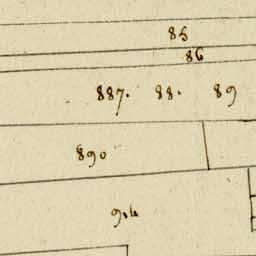 85
86
887. 88. 89
890
94